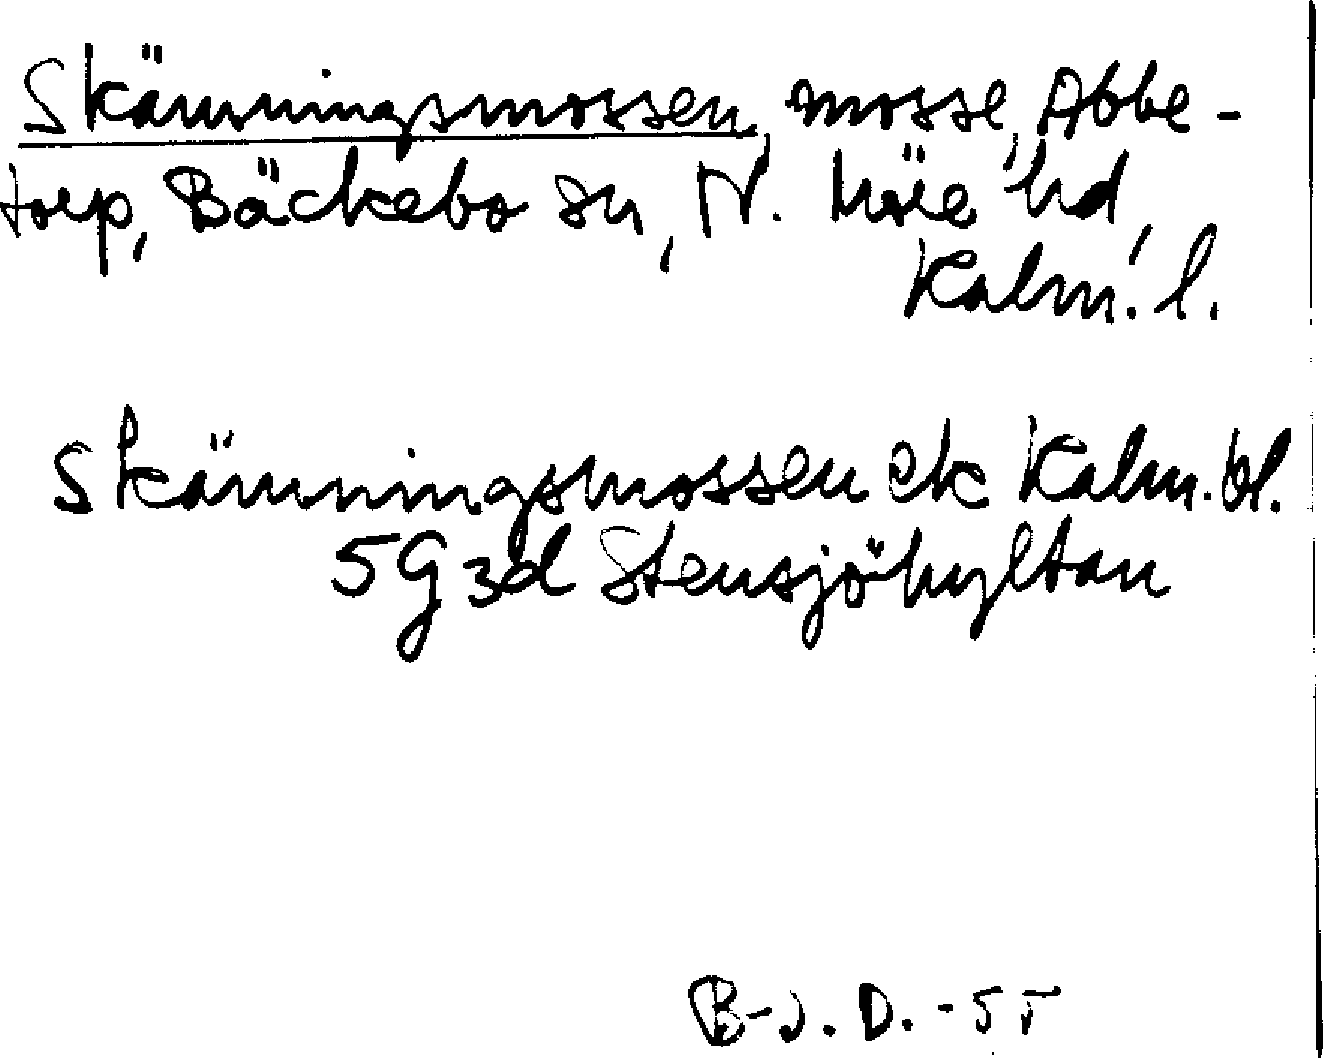 Skämningsmossen, mosse, Abbe-
torp, Bäckebo sn, N. Möre hd,
Kalm. l.
Skämningsmossen ek Kalm. bl.
5G3d Stensjöhyltan
B-J. D. -55